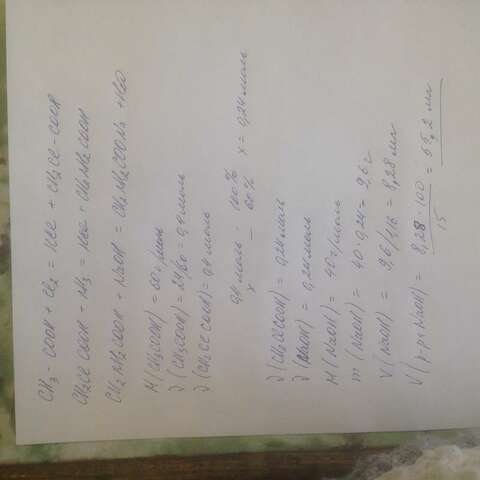 CH3 - COOH + Cl2 = HCl + CH2Cl-COOH
CH2Cl COOH + NH3 = HCl + CH2NH2 COOH
CH2NH2COOH + NaOH = CH2NH2COONa + H2O
M(CH3COOH) = 60 г/моль
ϑ(CH3COOH) = 24/60 = 0,4 моль
ϑ(CH2Cl COOH) = 0,4 моль
0,4 моль - 100%
x - 60% x = 0,24 моль
ϑ(CH2ClCOOH) = 0,24 моль
ϑ(NaOH) = 0,24 моль
M(NaOH) = 40 г/моль
m(NaOH) = 40 · 0,24 = 9,6 г
V(NaOH) = 9,6/1,16 = 8,28 мл
V(р-ра NaOH) = 8,28 · 100 / 15 = 55,2 мл